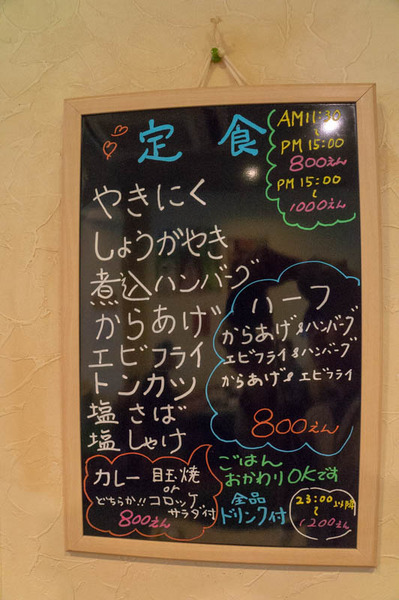 定食
AM11:30
〜
PM 15:00
800えん
PM 15:00
〜
1000えん
やきにく
しょうがやき
煮込ハンバーグ
からあげ
エビフライ
トンカツ
塩さば
塩しゃけ
ハーフ
からあげ&ハンバーグ
エビフライ&ハンバーグ
からあげ&エビフライ
800えん
カレー 目玉焼
or
どちらか!! コロッケ
サラダ付
800えん
ごはん
おかわりOKです
全品
ドリンク付
23:00以降
〜
1200えん